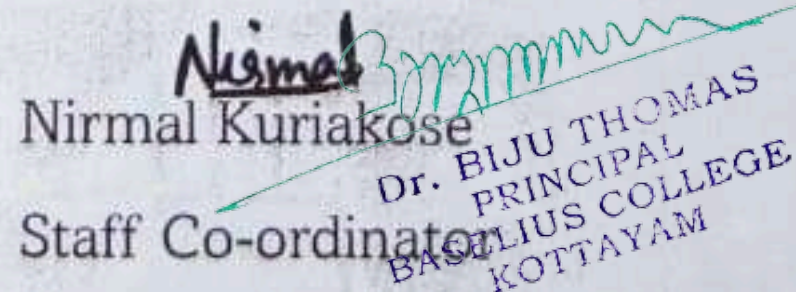 Nirmal
Nirmal Kuriakose
Staff Co-ordinator
Dr. BIJU THOMAS
PRINCIPAL
BASELIUS COLLEGE
KOTTAYAM